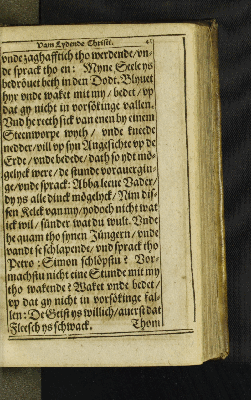 Vam Lydende Christi.
vnde zaghafftich tho werdende/ vn-
de sprack tho en: Myne Seele ys
bedröuet beth in den Dodt. Blyuet
hyr vnde waket mit my/ bedet/ vp
dat gy nicht in vorsökinge vallen.
Vnd he reeth sick van enen by einem
Steenworpe wyth/ vnde kneede
nedder/ vill vp syn Angesichte vp de
Erde/ vnde bedede/ dath so ydt mö-
gelyck were/ de stunde vorauergin-
ge/ vnde sprack: Abba leeue Vader/
dy ys alle dinck mögelyck/ Nim dis-
sen Kelck van my/ yodoch nicht wat
ick wil/ sünder wat du wult. Vnde
he quam tho synen Jüngern/ vnde
vandt se schlapende/ vnd sprack tho
Petro: Simon schlöpstu? Vor-
machstu nicht eine Stunde mit my
tho wakende? Waket vnde bedet/
vp dat gy nicht in vorsökinge fal-
len: De Geist ys willich/ auerst dat
Fleesch ys schwack.
Thom